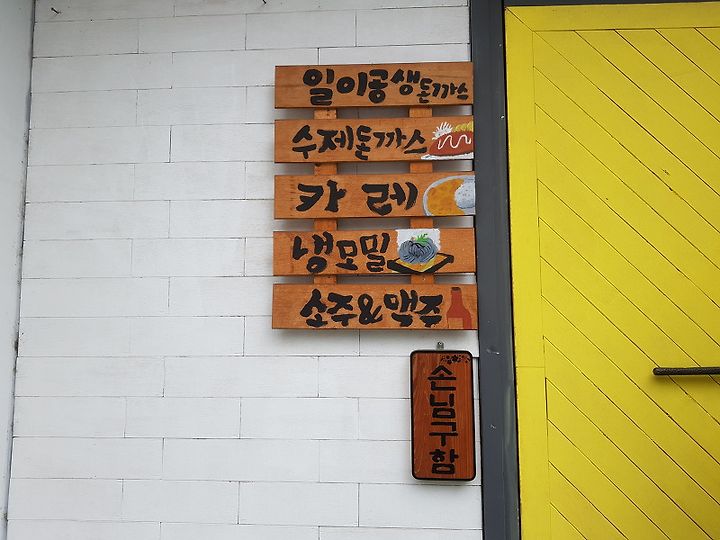 일이공생돈까스
수제돈까스
카레
냉모밀
소주&맥주
손님구함